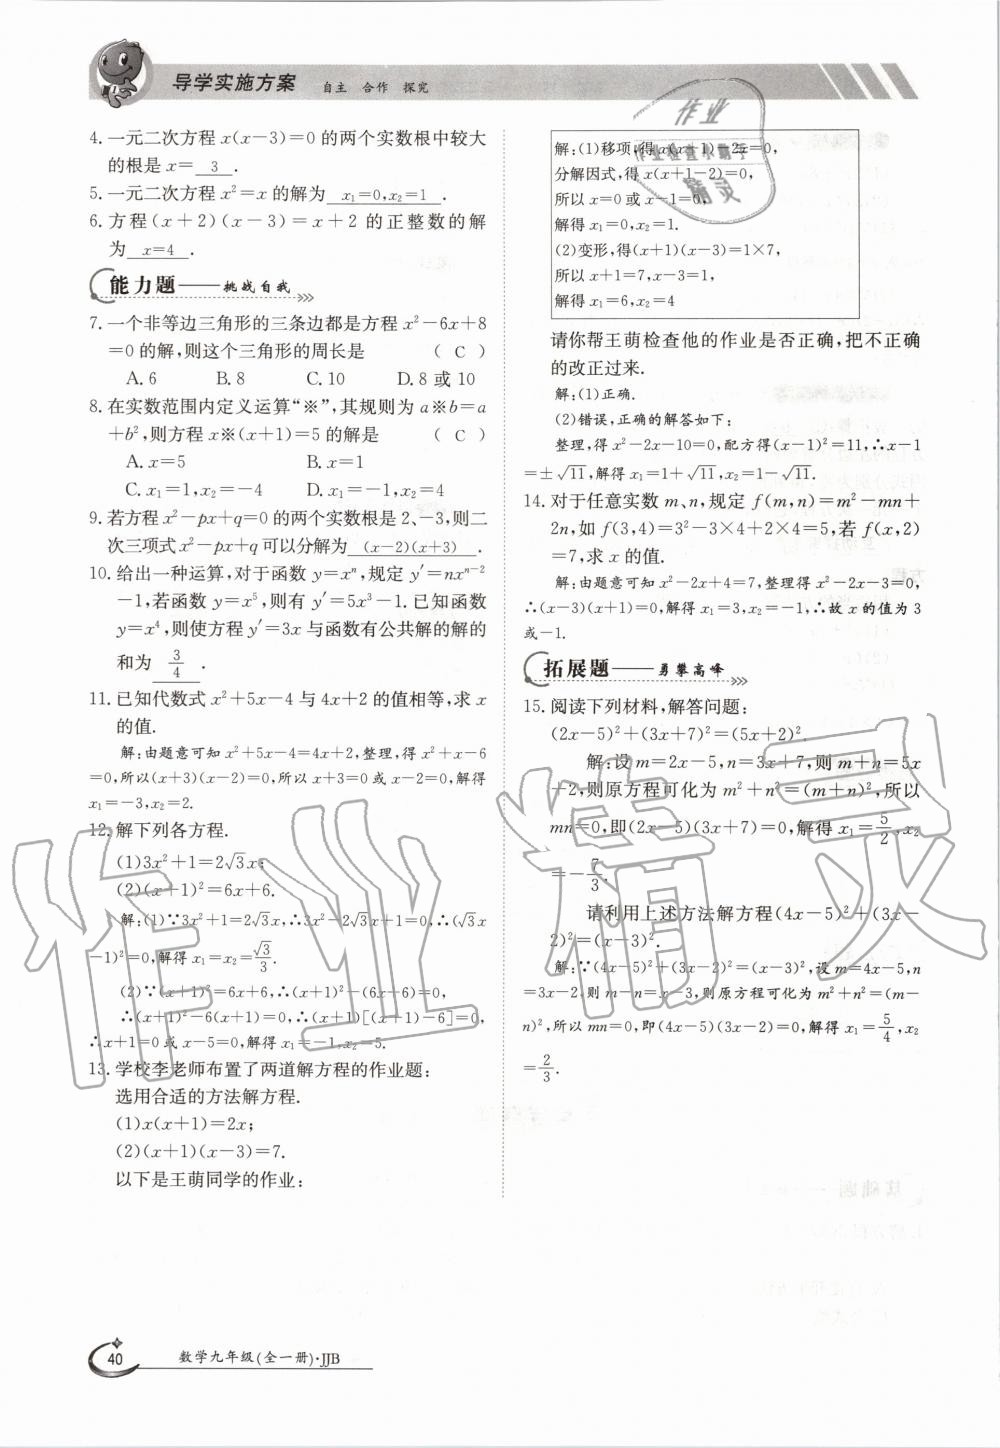 导学实施方案 自主 合作 探究
4. 一元二次方程 x(x－3)＝0 的两个实数根中较大
的根是 x＝ 3 .
5. 一元二次方程 x²＝x 的解为 x₁＝0,x₂＝1 .
6. 方程(x＋2)(x－3)＝x＋2 的正整数的解
为 x＝4 .
能力题——挑战自我
7. 一个非等边三角形的三条边都是方程 x²－6x＋8
＝0 的解,则这个三角形的周长是 ( C )
A. 6 B. 8 C. 10 D. 8 或 10
8. 在实数范围内定义运算“※”,其规则为 a※b＝a
＋b²,则方程 x※(x＋1)＝5 的解是 ( C )
A. x＝5 B. x＝1
C. x₁＝1,x₂＝－4 D. x₁＝－1,x₂＝4
9. 若方程 x²－px＋q＝0 的两个实数根是 2、－3,则二
次三项式 x²－px＋q 可以分解为 (x－2)(x＋3) .
10. 给出一种运算,对于函数 y＝xⁿ,规定 y′＝nxⁿ⁻²
－1,若函数 y＝x⁵,则有 y′＝5x³－1. 已知函数
y＝x⁴,则使方程 y′＝3x 与函数有公共解的解的
和为 3/4 .
11. 已知代数式 x²＋5x－4 与 4x＋2 的值相等,求 x
的值.
解:由题意可知 x²＋5x－4＝4x＋2,整理,得 x²＋x－6
＝0,所以(x＋3)(x－2)＝0,所以 x＋3＝0 或 x－2＝0,解得
x₁＝－3,x₂＝2.
12. 解下列各方程.
(1)3x²＋1＝2√3x;
(2)(x＋1)²＝6x＋6.
解:(1)∵3x²＋1＝2√3x,∴3x²－2√3x＋1＝0,∴(√3x
－1)²＝0,解得 x₁＝x₂＝√3/3.
(2)∵(x＋1)²＝6x＋6,∴(x＋1)²－(6x＋6)＝0,
∴(x＋1)²－6(x＋1)＝0,∴(x＋1)[(x＋1)－6]＝0,
∴x＋1＝0 或 x－5＝0,解得 x₁＝－1,x₂＝5.
13. 学校李老师布置了两道解方程的作业题:
选用合适的方法解方程.
(1)x(x＋1)＝2x;
(2)(x＋1)(x－3)＝7.
以下是王萌同学的作业:
解:(1)移项,得 x(x＋1)－2x＝0,
分解因式,得 x(x＋1－2)＝0,
所以 x＝0 或 x－1＝0,
解得 x₁＝0,x₂＝1.
(2)变形,得(x＋1)(x－3)＝1×7,
所以 x＋1＝7,x－3＝1,
解得 x₁＝6,x₂＝4
请你帮王萌检查他的作业是否正确,把不正确
的改正过来.
解:(1)正确.
(2)错误,正确的解答如下:
整理,得 x²－2x－10＝0,配方得(x－1)²＝11,∴x－1
＝±√11,解得 x₁＝1＋√11,x₂＝1－√11.
14. 对于任意实数 m、n,规定 f(m,n)＝m²－mn＋
2n,如 f(3,4)＝3²－3×4＋2×4＝5,若 f(x,2)
＝7,求 x 的值.
解:由题意可知 x²－2x＋4＝7,整理得 x²－2x－3＝0,
∴(x－3)(x＋1)＝0,解得 x₁＝3,x₂＝－1,∴故 x 的值为 3
或－1.
拓展题——勇攀高峰
15. 阅读下列材料,解答问题:
(2x－5)²＋(3x＋7)²＝(5x＋2)².
解:设 m＝2x－5,n＝3x＋7,则 m＋n＝5x
＋2,则原方程可化为 m²＋n²＝(m＋n)²,所以
mn＝0,即(2x－5)(3x＋7)＝0,解得 x₁＝5/2,x₂
＝－7/3.
请利用上述方法解方程(4x－5)²＋(3x－
2)²＝(x－3)².
解:∵(4x－5)²＋(3x－2)²＝(x－3)²,设 m＝4x－5,n
＝3x－2,则 m－n＝x－3,则原方程可化为 m²＋n²＝(m－
n)²,所以 mn＝0,即(4x－5)(3x－2)＝0,解得 x₁＝5/4,x₂
＝2/3.
40 数学九年级(全一册)·JJB
作业
精灵
作业精灵